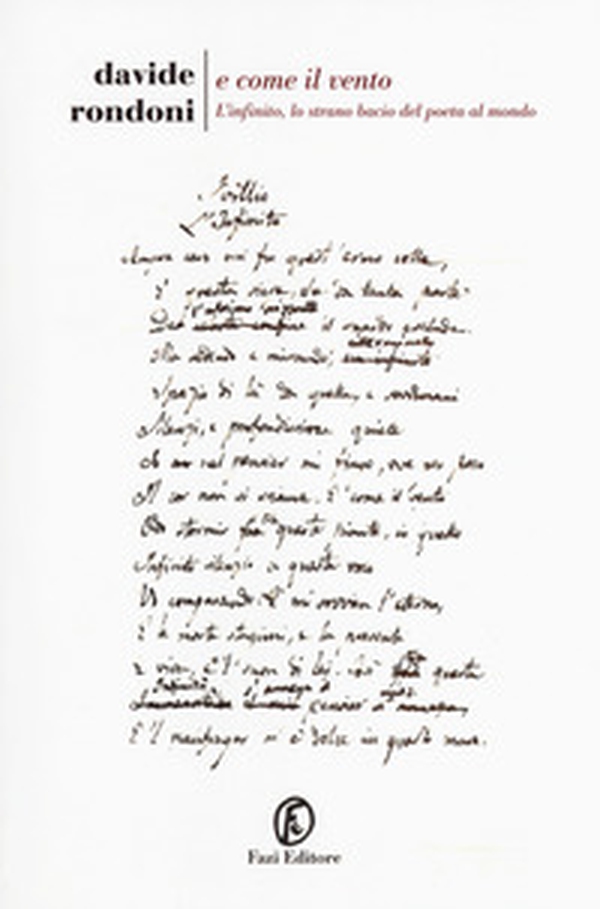 davide
rondoni
e come il vento
L'infinito, lo strano bacio del poeta al mondo
Idillio
L'Infinito
Sempre caro mi fu quest'ermo colle,
E questa siepe, che da tanta parte
De l'ultimo orizzonte il guardo esclude.
Ma sedendo e mirando,
Spazio di là da quella, e sovrumani
Silenzi, e profondissima quiete
Io nel pensier mi fingo, ove per poco
Il cor non si spaura. E come il vento
Odo stormir tra queste piante, io quello
Infinito silenzio a questa voce
Vo comparando: E mi sovvien l'eterno,
E le morte stagioni, e la presente
E viva, e 'l suon di lei. Così questa
pensier
E 'l naufragar m'è dolce in questo mare.
Fazi Editore